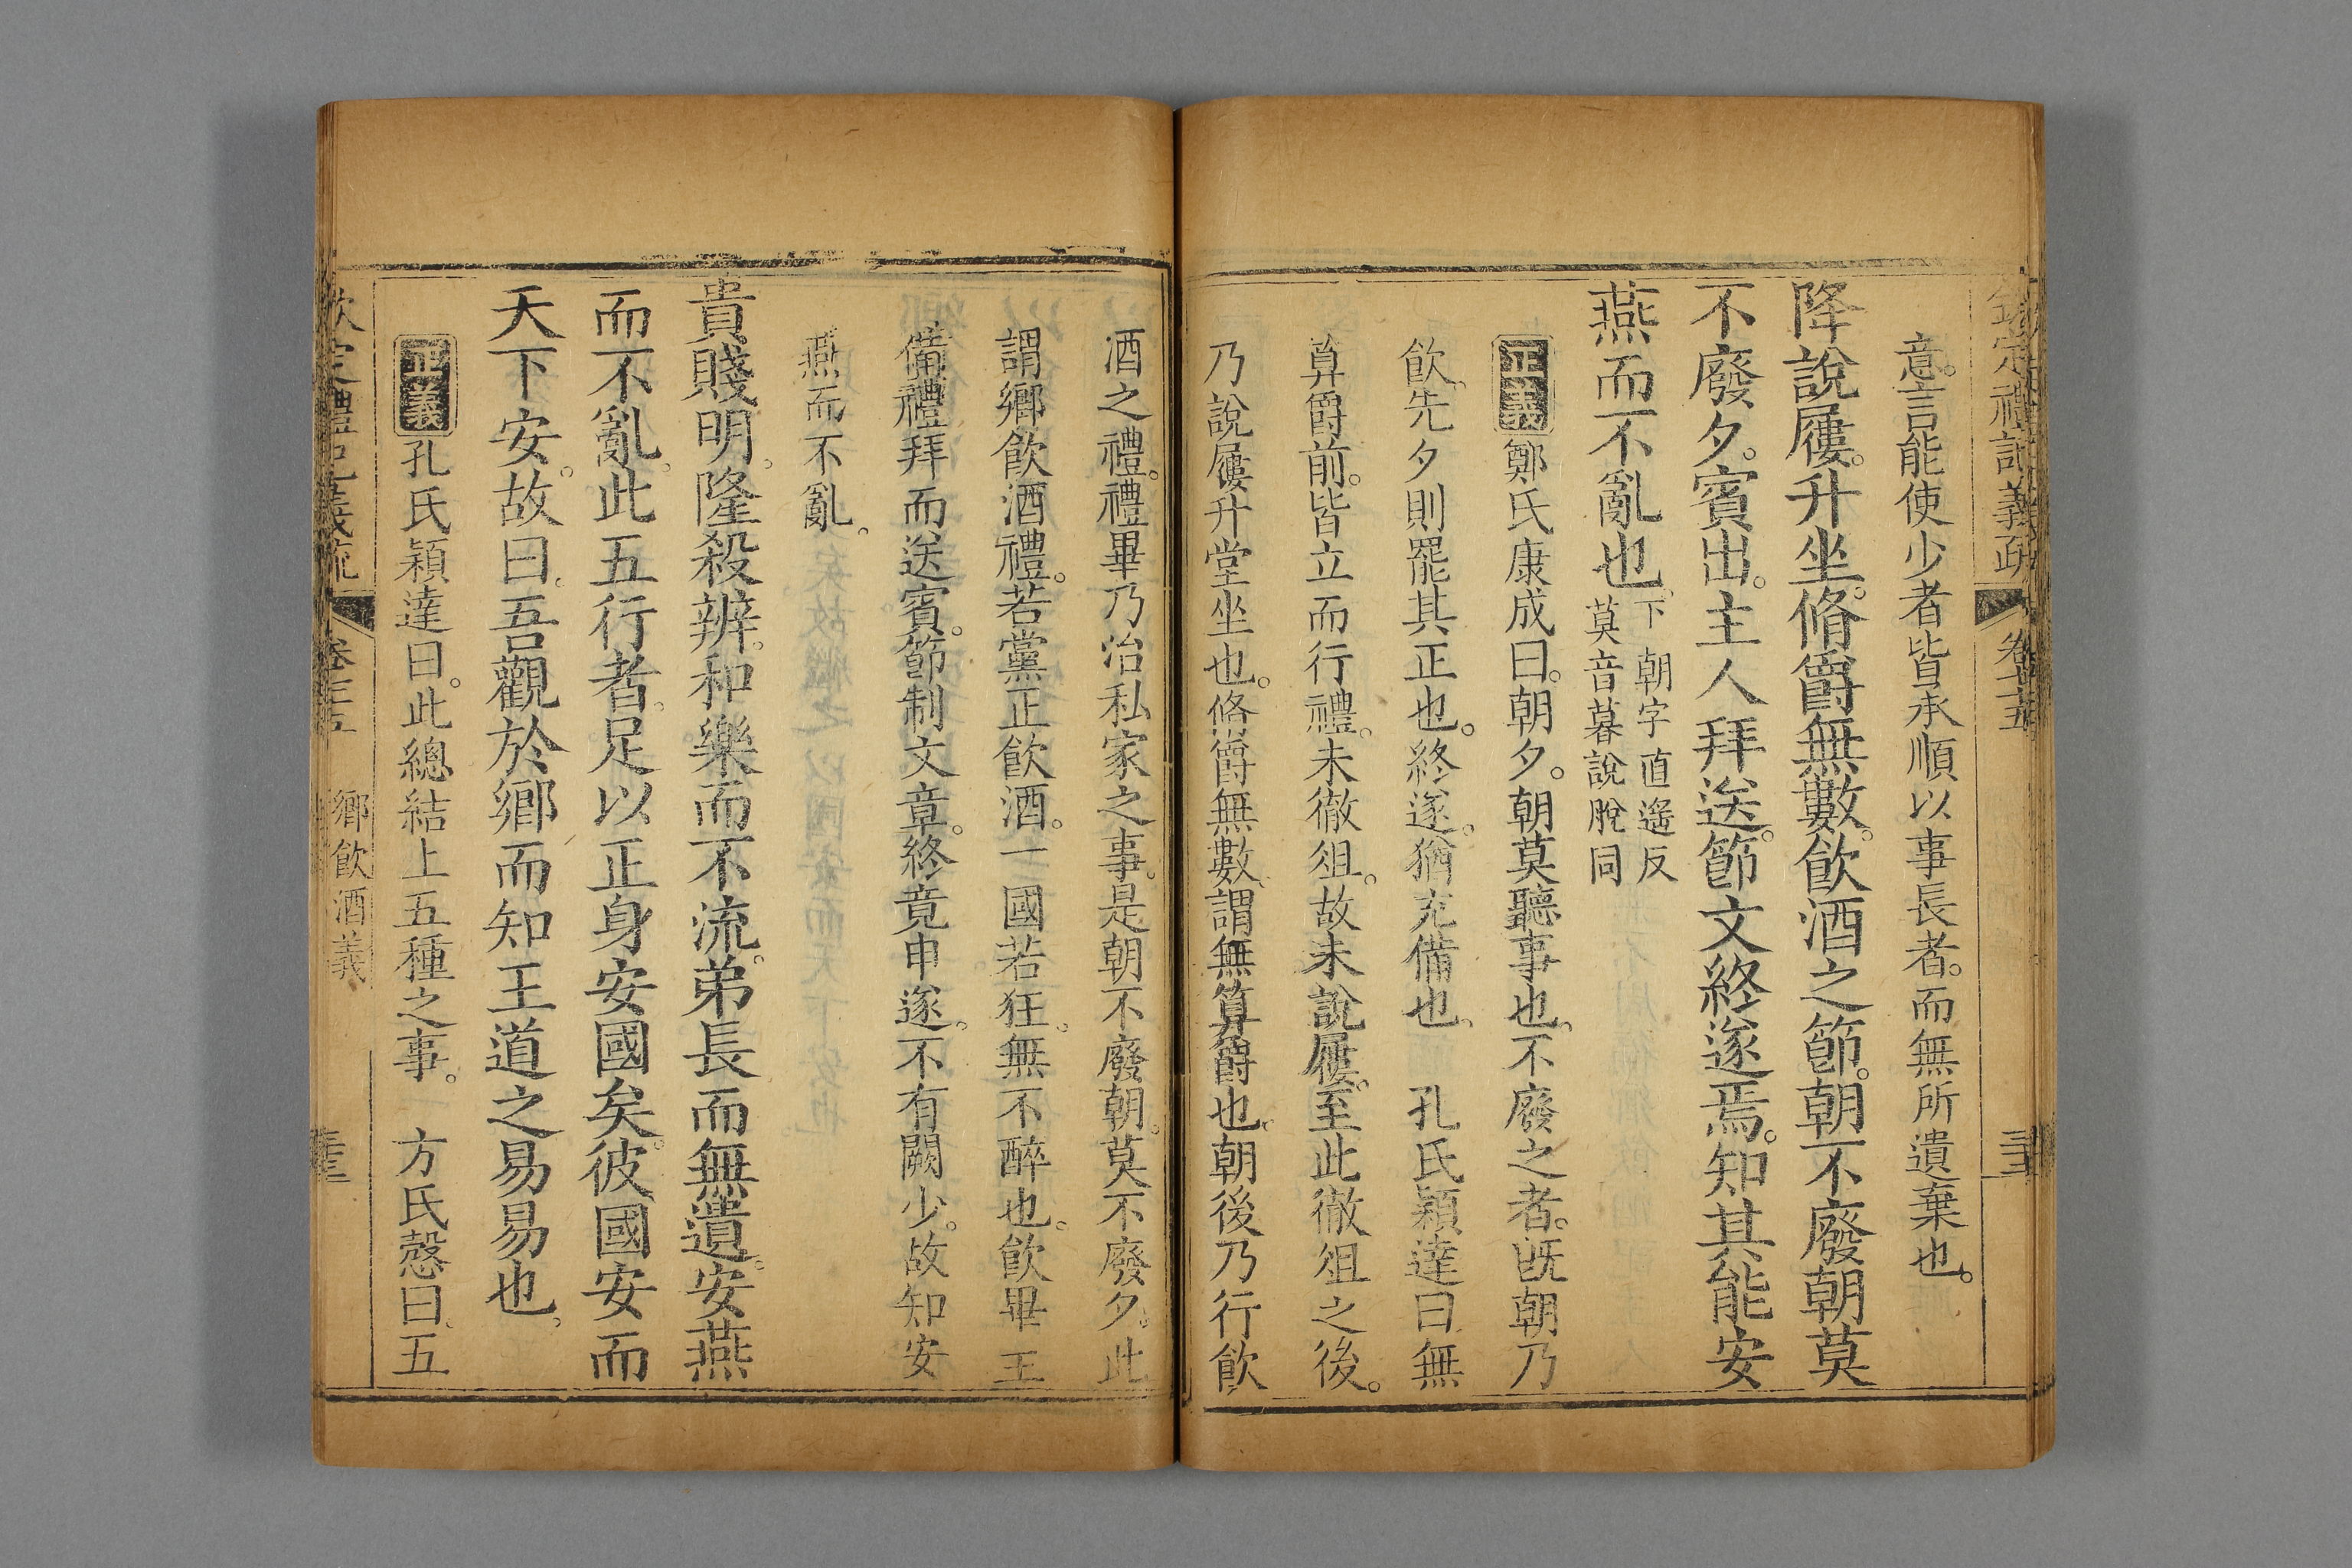 欽定禮記義疏 卷七十五 三十二
意。言能使少者皆承順以事長者。而無所遺棄也。
降說屨。升坐。脩爵無數。飲酒之節。朝不廢朝莫
不廢夕。賓出。主人拜送。節文終遂焉。知其能安
燕而不亂也。下朝字直遙反
莫音暮說脫同
正義鄭氏康成曰。朝夕。朝莫聽事也。不廢之者。旣朝乃
飲。先夕則罷其正也。終遂。猶充備也。 孔氏穎達曰無
算爵前。皆立而行禮。未徹俎。故未說屨。至此徹俎之後。
乃說屨升堂坐也。脩爵無數。謂無算爵也。朝後乃行飲
酒之禮。禮畢乃治私家之事。是朝不廢朝。莫不廢夕。此
謂鄉飲酒禮。若黨正飲酒。一國若狂。無不醉也。飲畢主
備禮拜而送賓。節制文章。終竟申遂。不有闕少。故知安
燕而不亂。
貴賤明。隆殺辨。和樂而不流。弟長而無遺。安燕
而不亂。此五行者。足以正身安國矣。彼國安而
天下安。故曰。吾觀於鄉而知王道之易易也。
正義孔氏穎達曰。此總結上五種之事。 方氏慤曰。五
欽定禮記義疏 卷七十五 鄉飲酒義